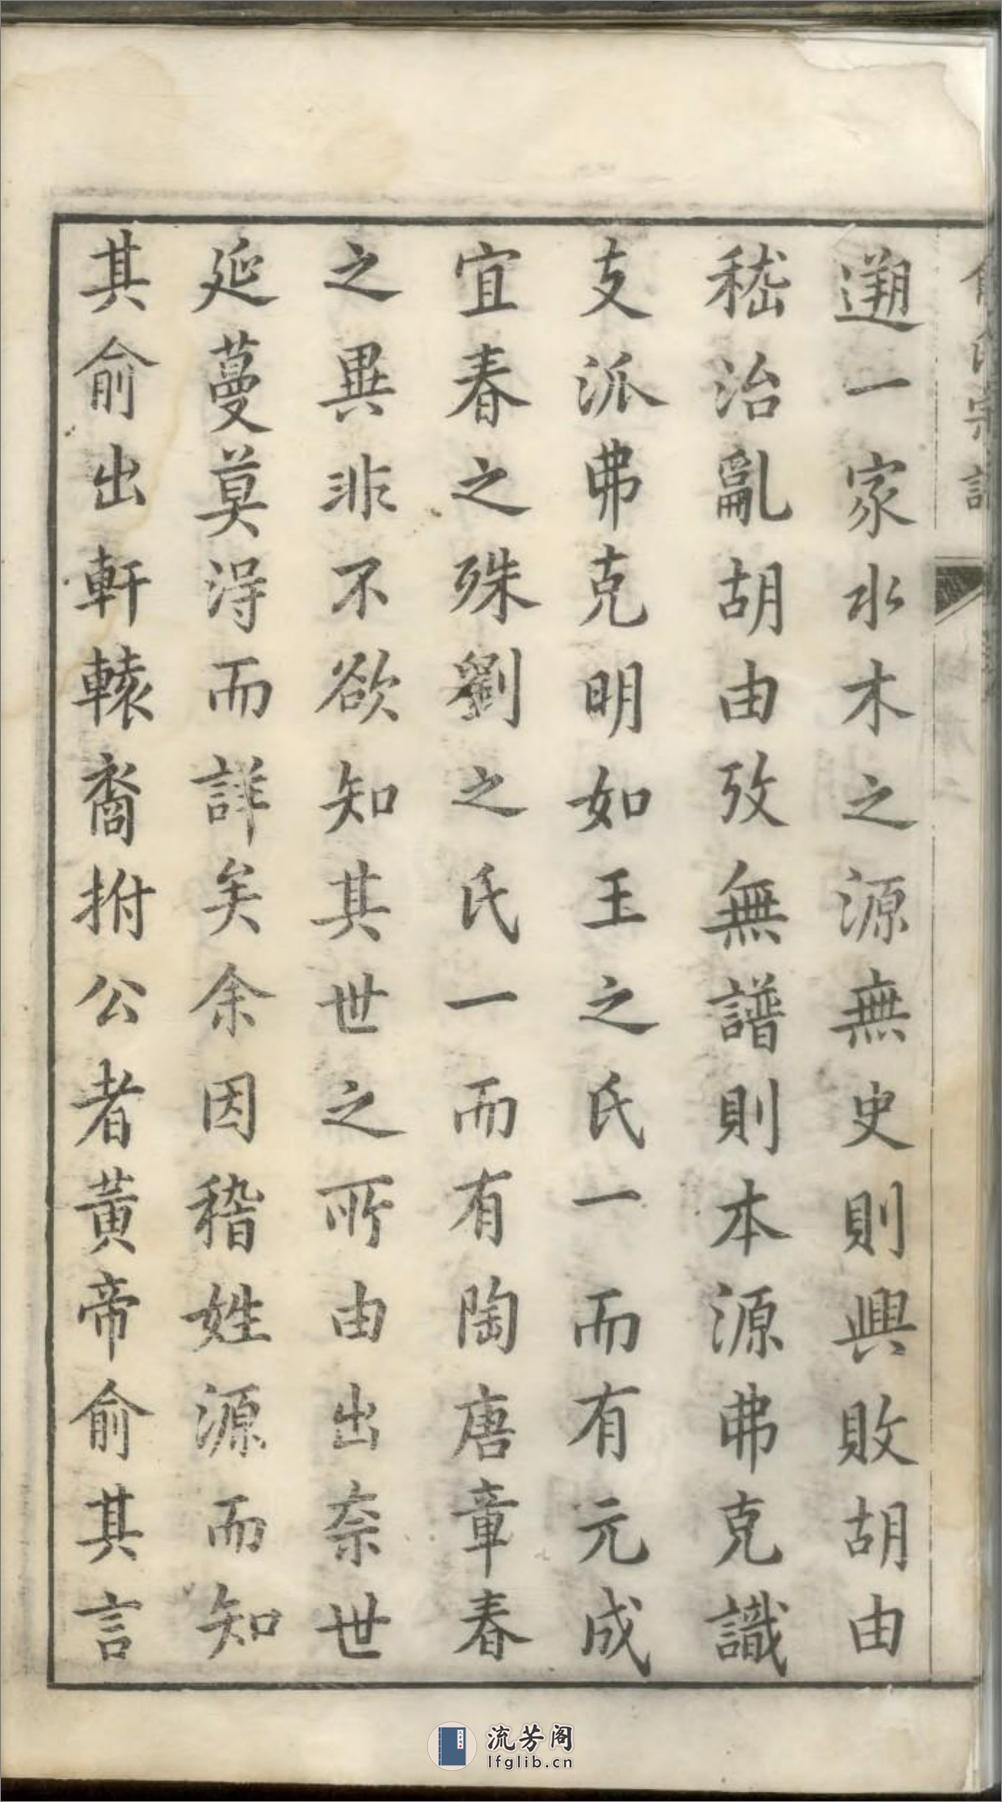 遡一家水木之源無史則興敗胡由
嵇治亂胡由攷無譜則本源弗克識
支派弗克明如王之氏一而有元成
宜春之殊劉之氏一而有陶唐章春
之異非不欲知其世之所由出奈世
延蔓莫得而詳矣余因稽姓源而知
其俞出軒轅裔拊公者黃帝俞其言
流芳阁
lfglib.cn